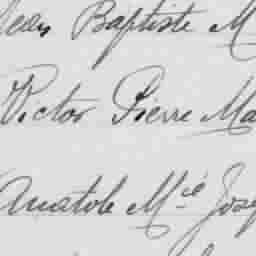 Jean Baptiste M
Victor Pierre Ma
Anatole M.ié Jose